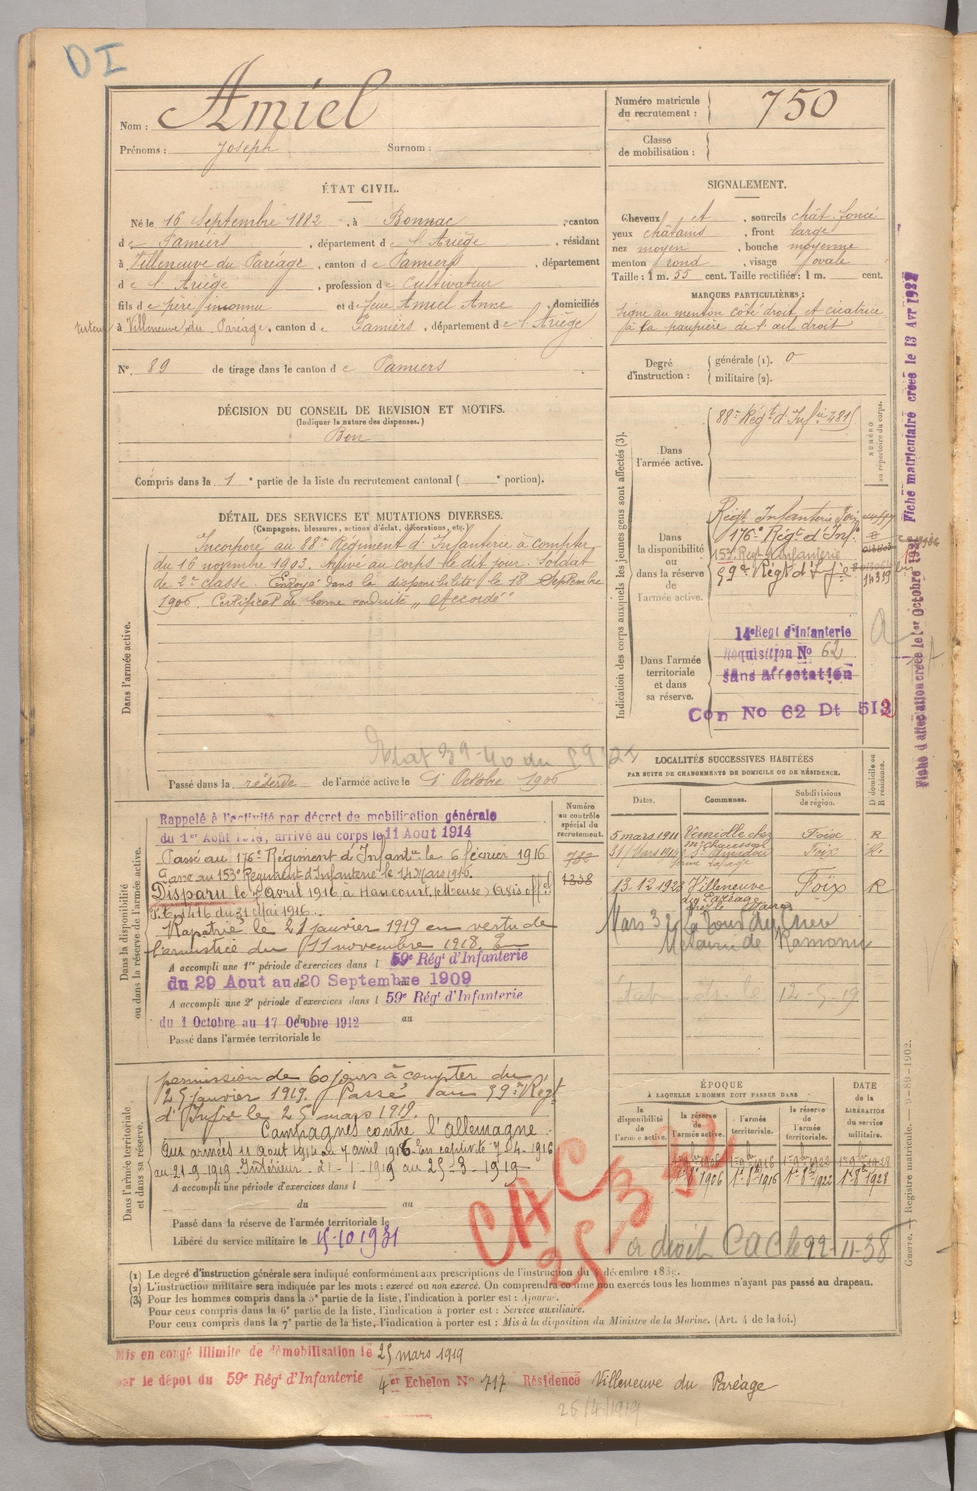 DI
Nom : Amiel
Prénoms : Joseph Surnom :
Numéro matricule du recrutement : 750
Classe de mobilisation :
ÉTAT CIVIL.
Né le 16 Septembre 1882, à Bonnac, canton
de Pamiers, département de l'Ariège, résidant
à Villeneuve du Paréage, canton de Pamiers, département
de l'Ariège, profession de Cultivateur
fils de père inconnu et de feue Amiel Anne, domiciliés
à Villeneuve du Paréage, canton de Pamiers, département de l'Ariège
N° 89 de tirage dans le canton de Pamiers
DÉCISION DU CONSEIL DE REVISION ET MOTIFS.
(Indiquer la nature des dispenses.)
Bon
Compris dans la 1e partie de la liste du recrutement cantonal ( e portion).
SIGNALEMENT.
Cheveux et, sourcils chât. foncé
yeux châtains, front large
nez moyen, bouche moyenne
menton rond, visage ovale
Taille : 1 m. 55 cent. Taille rectifiée : 1 m. cent.
MARQUES PARTICULIÈRES :
signe au menton côté droit, et cicatrice
à la paupière de l'œil droit
Degré d'instruction : générale (1). 0
militaire (2).
DÉTAIL DES SERVICES ET MUTATIONS DIVERSES.
(Campagnes, blessures, actions d'éclat, décorations, etc.)
Dans l'armée active.
Incorporé au 88e Régiment d'Infanterie à compter
du 16 novembre 1903. Arrivé au corps le dit jour. Soldat
de 2e classe. Envoyé dans la disponibilité le 18 Septembre
1906. Certificat de bonne conduite "Accordé"
Passé dans la réserve de l'armée active le 1er Octobre 1906
Indication des corps auxquels les jeunes gens sont affectés (3).
NUMÉRO au répertoire du corps.
Dans l'armée active.
88e Régt d'Infie
Dans la disponibilité ou dans la réserve de l'armée active.
Régt Infanterie Foix
176e Régt d'Inf.
153e Régt d'Infanterie
59e Régt d'Infie
Dans l'armée territoriale et dans sa réserve.
14e Regt d'Infanterie
Requisition No 62
sans affectation
Con No 62 Dt 512
Fiche d'affectation créée le 1er Octobre 1927
Fiche matriculaire créée le 13 Avr 1927
Dans la disponibilité ou dans la réserve de l'armée active.
Numéro au contrôle spécial du recrutement.
Rappelé à l'activité par décret de mobilisation générale
du 1er Août 1914, arrivé au corps le 11 Aout 1914
Passé au 176e Régiment d'Infantie le 6 février 1916
Passé au 153e Régiment d'Infanterie le 14 Mars 1916.
Disparu le 7 avril 1916 à Haucourt (Meuse) Avis offel
du 31 Mai 1916.
Rapatrié le 21 janvier 1919 en vertu de
l'armistice du 11 novembre 1918.
1338
A accompli une 1re période d'exercices dans l 59e Régt d'Infanterie
du 29 Aout au 20 Septembre 1909
A accompli une 2e période d'exercices dans l 59e Régt d'Infanterie
du 1 Octobre au 17 Octobre 1912
Passé dans l'armée territoriale le
LOCALITÉS SUCCESSIVES HABITÉES
PAR SUITE DE CHANGEMENTS DE DOMICILE OU DE RÉSIDENCE.
Dates. Communes. Subdivisions de région. D domicile ou R résidence.
5 mars 1911 Verniolle chez Foix R
31 Mars 1911 Foix R.
13.12.1923 Villeneuve du Paréage Foix R
Dans l'armée territoriale et dans sa réserve.
permission de 60 jours à compter du
25 janvier 1919. Passé au 59e Régt
d'Infie le 25 mars 1919.
Campagnes contre l'Allemagne
Aux armées 11 août 1914 au 7 avril 1916 En captivité 7-4-1916
au 21-9-1919 Intérieur.
A accompli une période d'exercices dans l
du au
Passé dans la réserve de l'armée territoriale le
Libéré du service militaire le 15-10-1931
ÉPOQUE
À LAQUELLE L'HOMME DOIT PASSER DANS
la disponibilité de l'armée active. la réserve de l'armée active. l'armée territoriale. la réserve de l'armée territoriale. DATE de la LIBÉRATION du service militaire.
1er 8bre 1906 1er 8bre 1916 1er 8bre 1922 1er 8bre 1928
CAC
a droit CAC le 22-11-38
(1) Le degré d'instruction générale sera indiqué conformément aux prescriptions de l'instruction du décembre
(2) L'instruction militaire sera indiquée par les mots : exercé ou non exercé. On comprendra comme non exercés tous les hommes n'ayant pas passé au drapeau.
(3) Pour les hommes compris dans la 5e partie de la liste, l'indication à porter est : Ajourné.
Pour ceux compris dans la 6e partie de la liste, l'indication à porter est : Service auxiliaire.
Pour ceux compris dans la 7e partie de la liste, l'indication à porter est : Mis à la disposition du Ministre de la Marine. (Art. 4 de la loi.)
Mis en congé illimité de démobilisation le 25 mars 1919
par le dépot du 59e Régt d'Infanterie 4er Echelon No 717 Résidence Villeneuve du Paréage
26/4/1919